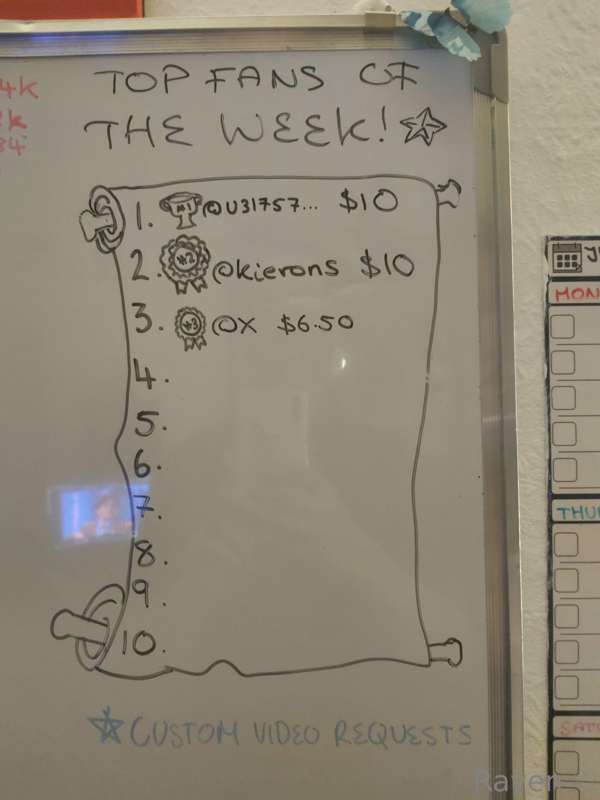 4K
TOP FANS OF
THE WEEK!
1. #1 @U31757... $10
2. #2 @kierons $10
3. #3 @X $6.50
4.
5.
6.
7.
8.
9.
10.
CUSTOM VIDEO REQUESTS
MON
THU
SAT
Raven